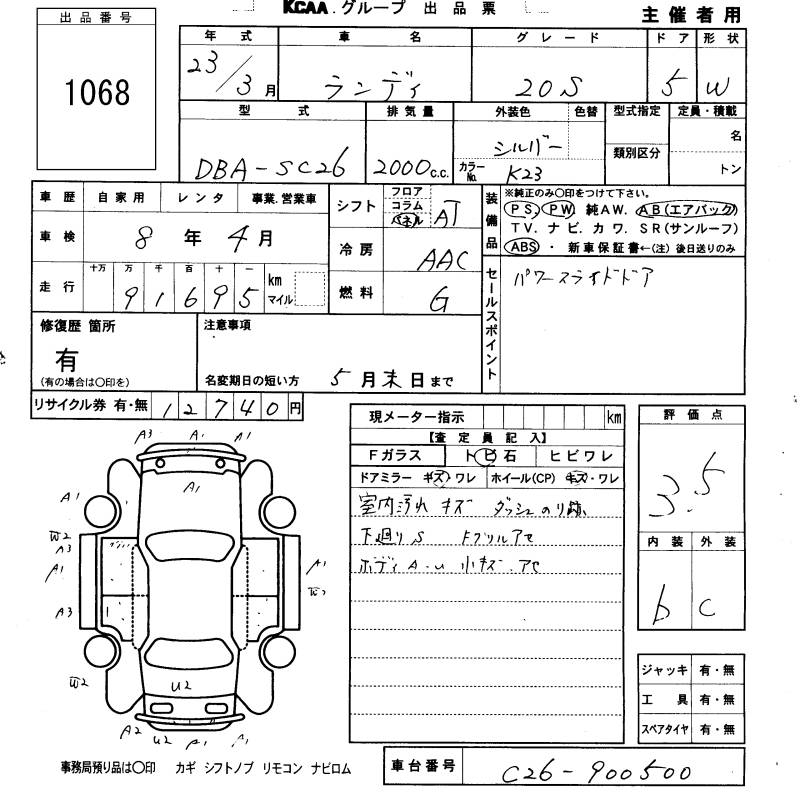 KCAA.グループ 出品票
主催者用
出品番号
1068
年式 車名 グレード ドア 形状
23/3月 ランディ 20S 5 W
型式 排気量 外装色 色替 型式指定 定員・積載
DBA-SC26 2000c.c. シルバー 名
類別区分
カラーNo. K23 トン
車歴 自家用 レンタ 事業.営業車
車検 8年4月
走行 十万 万 千 百 十 一 km マイル
91695
シフト フロア コラム パネル AT
冷房 AAC
燃料 G
装備品 ※純正のみ〇印をつけて下さい。
PS. PW 純AW. AB(エアバック)
TV. ナビ. カワ. SR(サンルーフ)
ABS ・ 新車保証書←(注)後日送りのみ
セールスポイント パワースライドドア
修復歴 箇所
有
(有の場合は〇印を)
注意事項
名変期日の短い方 5月末日まで
リサイクル券 有・無 12740円
現メーター指示 km
【査定員記入】
Fガラス トビ石 ヒビワレ
ドアミラー キズ・ワレ ホイール(CP) キズ・ワレ
室内汚れ キズ ダッシュのり跡
下廻りS Fグリルアセ
ボディA-u 小キズ.アセ
評価点
3.5
内装 外装
b c
ジャッキ 有・無
工具 有・無
スペアタイヤ 有・無
A3 A1 A1
A1
A1
W2
A3
A1 A1
W2
A3
W2
U2
A2 U2 A1 A1
事務局預り品は〇印 カギ シフトノブ リモコン ナビロム
車台番号 C26-900500